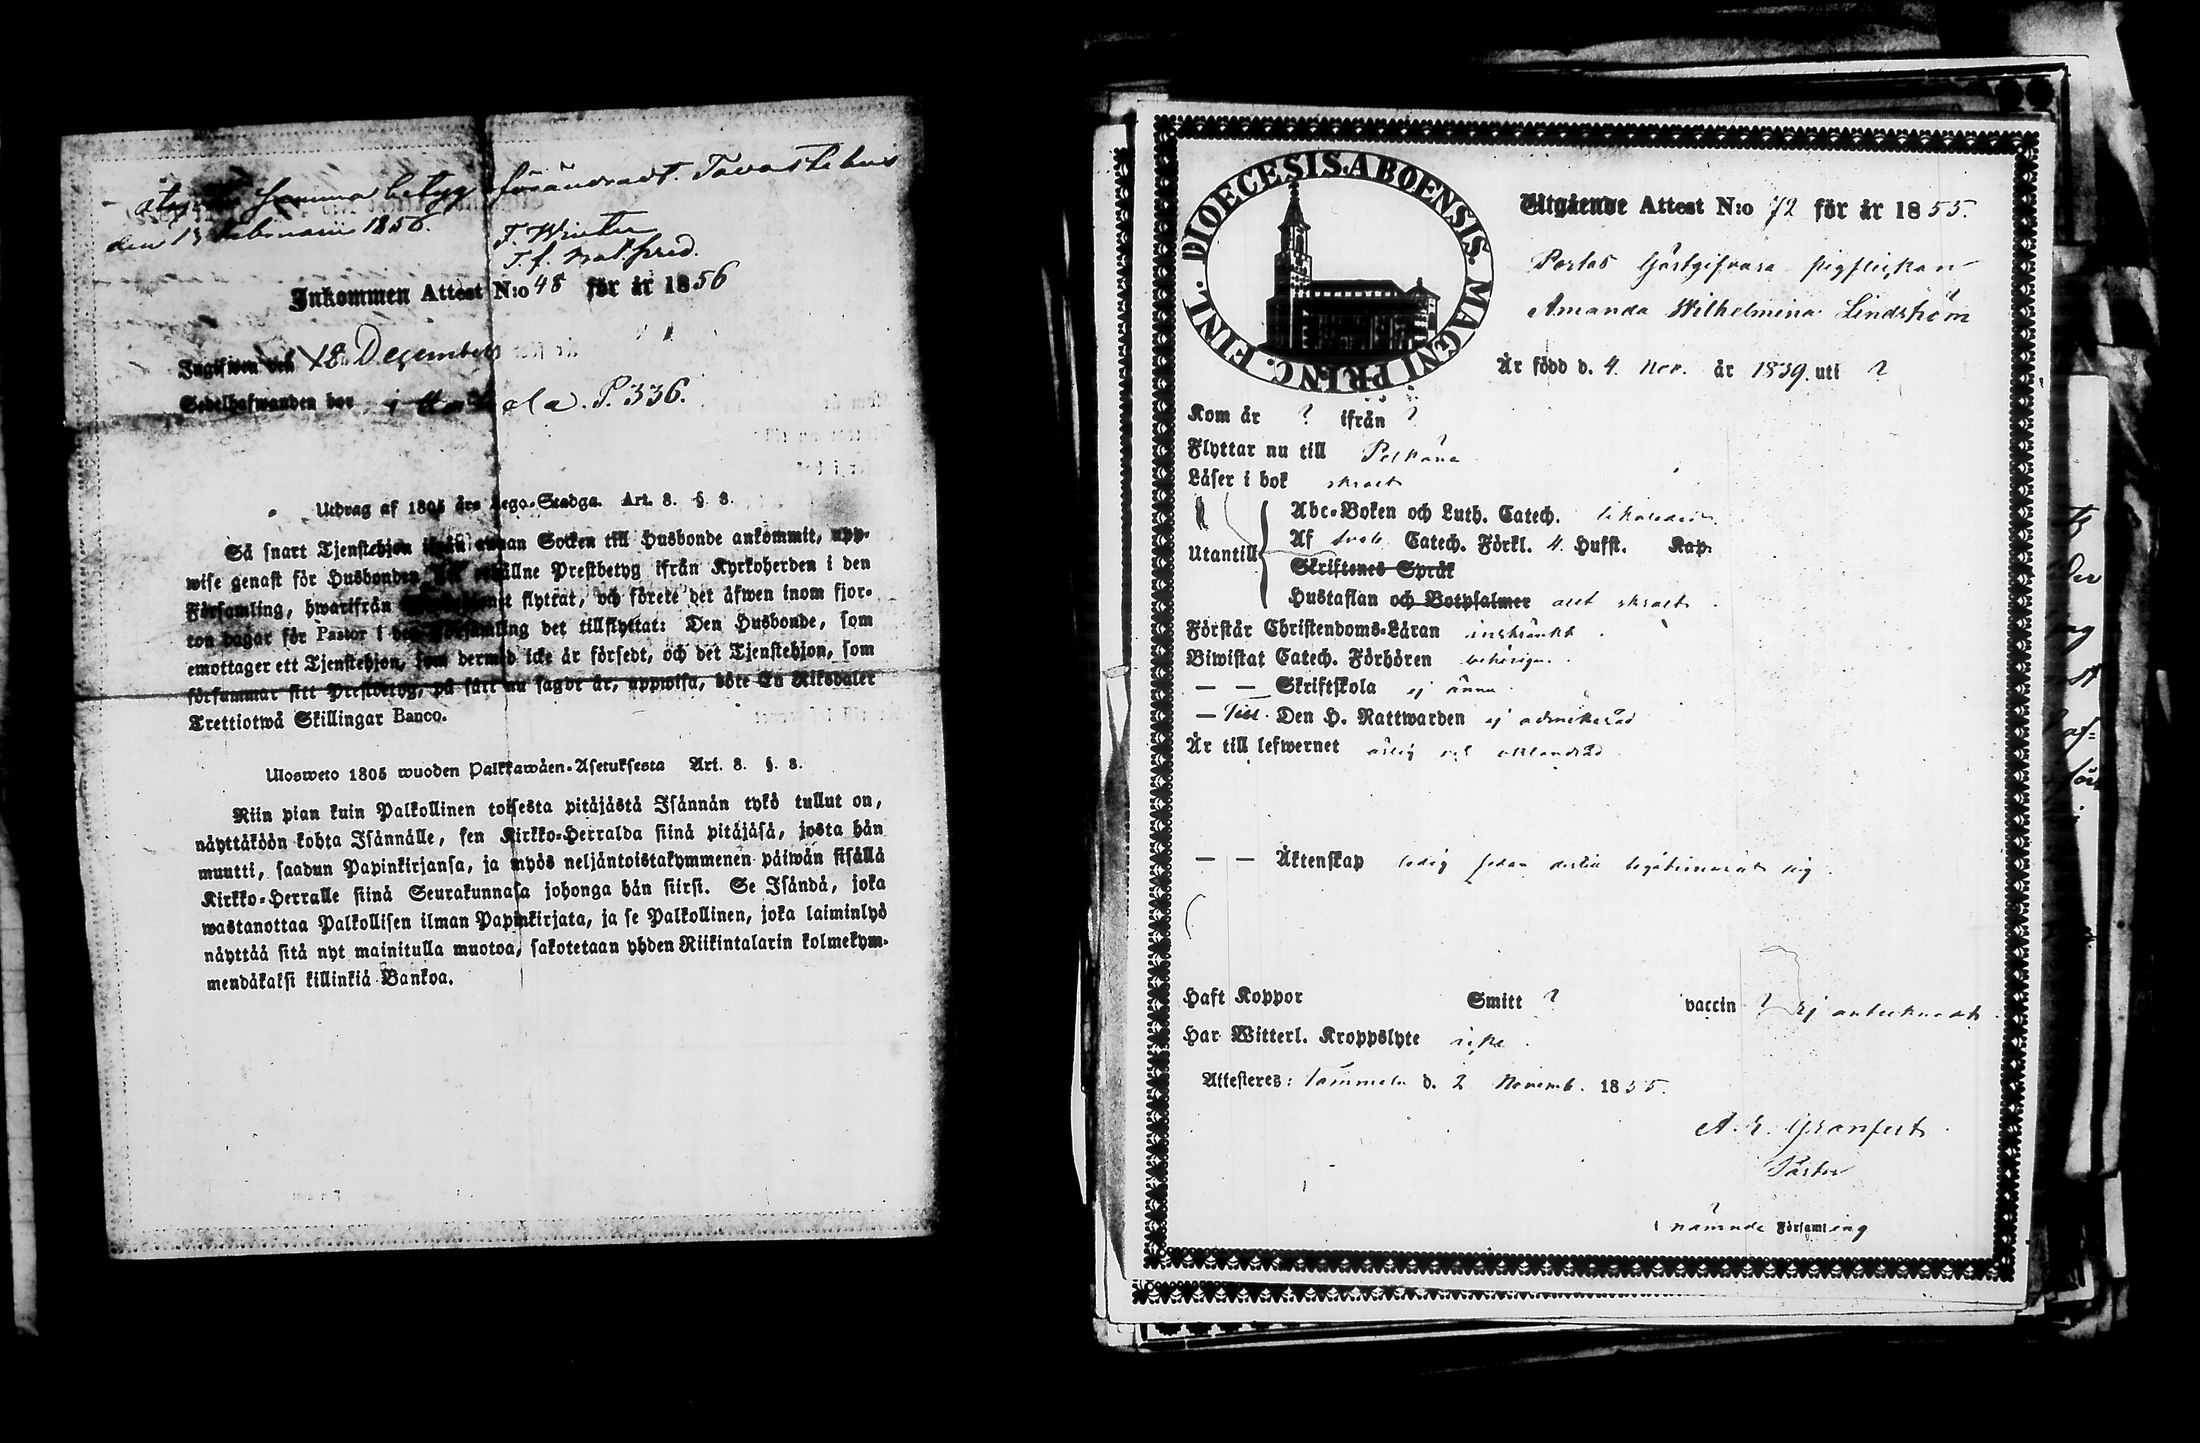 samma betyg förändradt. Tavastehus
den 13 Februarii 1856.
F. Winter
T. f.
Inkommen Attest N:o 48 för år 1856
Ingifwen den 18 December
Sedelhafwanden bor i ala. P. 336.
Utdrag af 1805 års Lego-Stadga. Art. 8. §. 8.
Så snart Tjenstehjon ifrån annan Socken till Husbonde ankommit, upp-
wise genast för Husbonden det erhållne Prestbetyg ifrån Kyrkoherden i den
Församling, hwarifrån flyttat, och förete det äfwen inom fjor-
ton dagar för Pastor i den Församling det tillflyttat: Den Husbonde, som
emottager ett Tjenstehjon, som dermed icke är försedt, och det Tjenstehjon, som
försummar sitt Prestbetyg, på sätt nu sagdt är, uppwisa, böte En Riksdaler
Trettiotwå Skillingar Banco.
Ulosweto 1805 wuoden Palkkawäen-Asetuksesta Art. 8. §. 8.
Niin pian kuin Palkollinen toisesta pitäjästä Isännän tykö tullut on,
näyttäköön kohta Isännälle, sen Kirkko-Herralda siinä pitäjäsä, josta hän
muutti, saadun Papinkirjansa, ja myös neljäntoistakymmenen päiwän sisällä
Kirkko-Herralle siinä Seurakunnasa johonga hän siirsi. Se Isändä, joka
wastanottaa Palkollisen ilman Papinkirjata, ja se Palkollinen, joka laiminlyö
näyttää sitä nyt mainitulla muotoa, sakotetaan yhden Riikintalarin kolmekym-
mendäkaksi killinkiä Bankoa.
DIOECESIS. ABOENSIS. MAGNI PRINC. FINL.
Utgående Attest N:o 72 för år 1855.
Portas Gästgifvare pigflickan
Amanda Wilhelmina Lindström
Är född d. 4 Nov. år 1839. uti ?
Kom år ? ifrån ?
Flyttar nu till Pelkäne
Läser i bok skralt
Abc-Boken och Luth. Catech. likaledes
Utantill Af Sveb. Catech. Förkl. 4. Hufst. Kap.
Skriftenes Språk
Hustaflan och Botpsalmer allt skralt.
Förstår Christendoms-Läran inskränkt.
Biwistat Catech. Förhören behörigen.
— — Skriftskola ej ännu
— Till Den H. Nattwarden ej admitterad
Är till lefwernet ärlig och oklandrad
— — Äktenskap ledig sedan destie legitimerat sig
Haft Koppor Smitt ? vaccin ? Ej antecknadt.
Har Witterl. Kroppslyte icke.
Attesteres: Tammela d. 2 Novemb. 1855.
A. E. Granfelt.
Pastor
i nämnde Församling